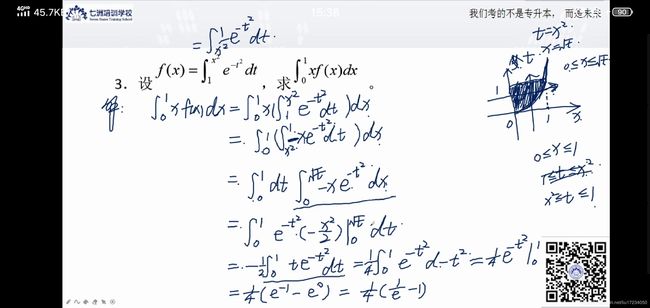 4G 45.7K
15:36
90
七洲培训学校
我们考的不是专升本, 而是未来
= ∫_{x²}^{1} e^{-t²}dt.
3. 设 f(x)=∫_{1}^{x²} e^{-t²}dt , 求 ∫_{0}^{1} xf(x)dx 。
解: ∫_{0}^{1} xf(x)dx = ∫_{0}^{1} x(∫_{1}^{x²} e^{-t²}dt)dx
= ∫_{0}^{1}(∫_{x²}^{1} -xe^{-t²}dt)dx
= ∫_{0}^{1}dt ∫_{0}^{√t} -xe^{-t²}dx
= ∫_{0}^{1} e^{-t²}(-x²/2)|_{0}^{√t} dt
= -1/2∫_{0}^{1} te^{-t²}dt = 1/4∫_{0}^{1} e^{-t²}d-t² = 1/4e^{-t²}|_{0}^{1}
= 1/4(e^{-1} - e^{0}) = 1/4(1/e - 1)
t=x²
x=√t
t
0≤x≤√t
1
0
1
x
0≤x≤1
1≤t≤x²
x²≤t≤1